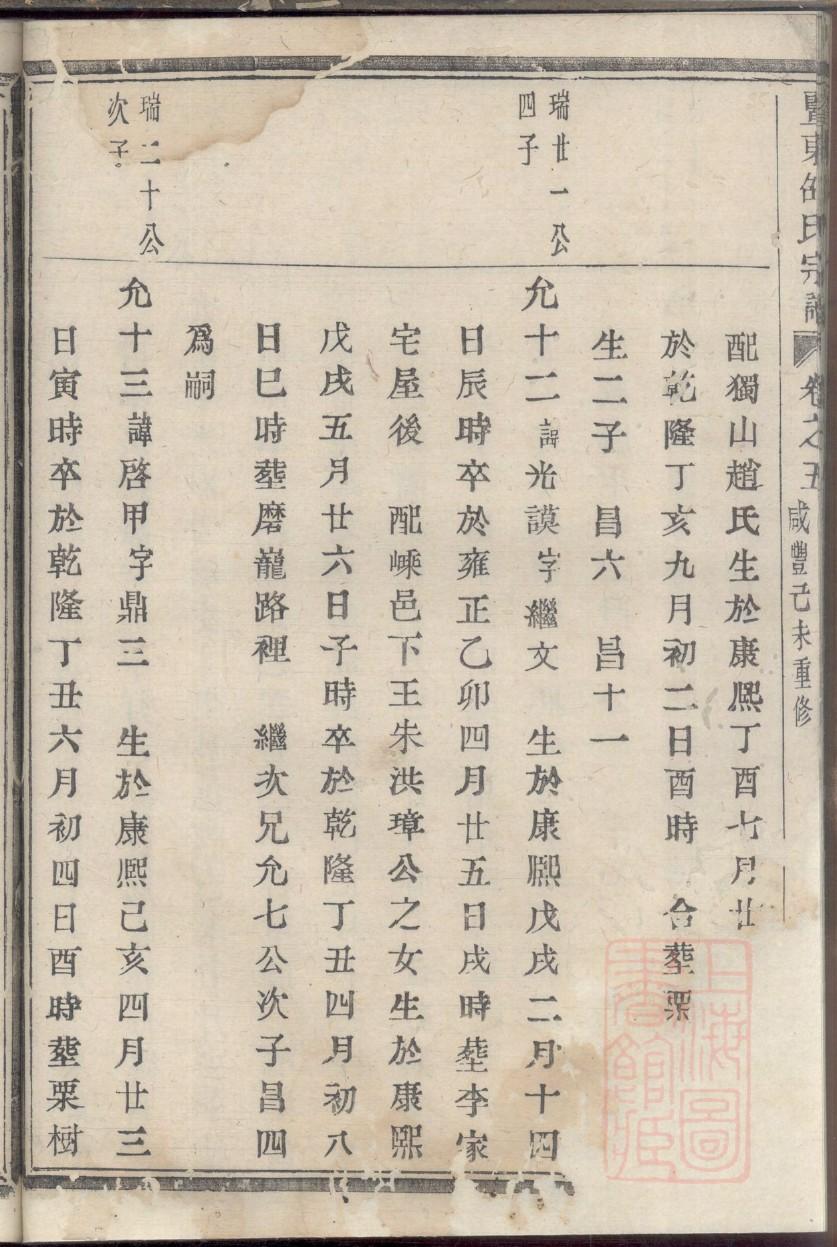 暨東 氏宗譜 卷之五 咸豐己未重修
配獨山趙氏生於康熙丁酉七月廿
於乾隆丁亥九月初二日酉時 合塟栗
生二子 昌六 昌十一
瑞廿一公
四子
允十二諱光謨字繼文 生於康熙戊戌二月十四
日辰時卒於雍正乙卯四月廿五日戌時塟李家
宅屋後 配嵊邑下王朱洪璋公之女生於康熙
戊戌五月廿六日子時卒於乾隆丁丑四月初八
日巳時塟磨巃路裡 繼次兄允七公次子昌四
爲嗣
瑞二十公
次子
允十三諱啓甲字鼎三 生於康熙己亥四月廿三
日寅時卒於乾隆丁丑六月初四日酉時塟栗樹
上海圖
書館藏